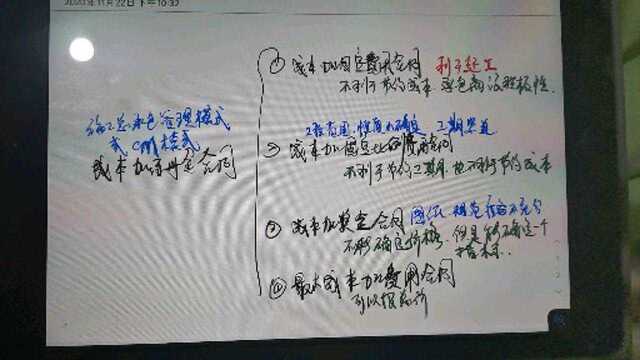 2020年11月22日下午10:32
施工总承包管理模式
或CM模式
成本加酬金合同
① 成本加固定费用合同 利于赶工
不利于节约成本 承包商没积极性.
工程范围、性质不确定 工期紧迫
② 成本加固定比例费用合同
不利于节约工期、也不利于节约成本
③ 成本加奖金合同 图纸、规范准备不充分
不能确定价格、但是能确定一个
指标..
④ 最大成本加费用合同
可以报总价